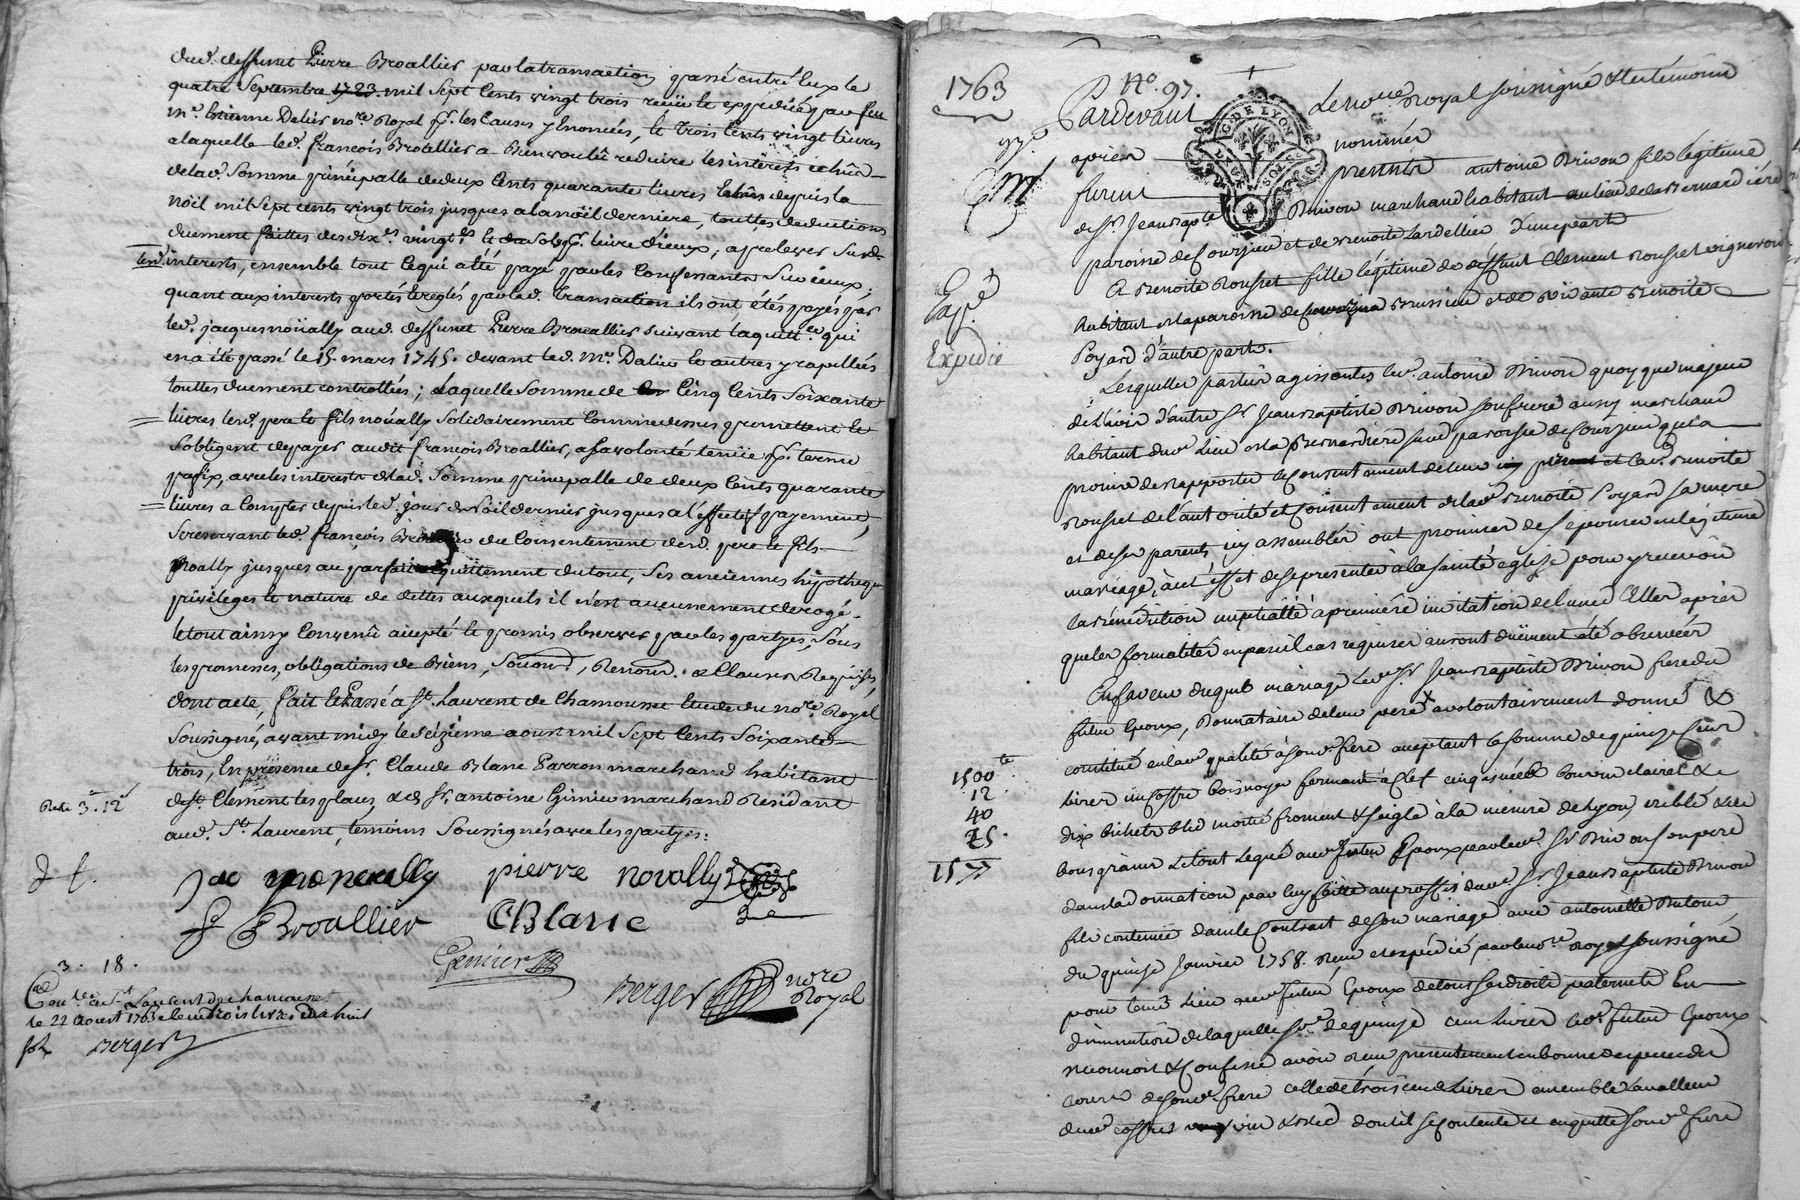 dud. deffunt Pierre Broallier par la transaction passé entré Eux le
quatre Septembre 1723. mil Sept Cents vingt trois reciie le expediéé par feu
Me. Etienne Dalier nore. Royal pr. les Causes y Enoncées, le trois Cents vingt livres
a laquelle led. françois Broallier a Bien voulû reduire les intérets échûs
de lad. Somme principalle de deux Cents quarante livres depuis la
noël mil Sept cents vingt trois jusques a la noël derniere, touttes deductions
duement faittes des dixes. vingtes. le Sols pr. livre d'iceux, a prelever Surd.
interests, ensemble tout ce qui a été payé par les Confessants Sur iceux;
quant aux interests portés le reglés par lad. transaction ils ont étés payés par
led. jacques noüally aud. deffunct Pierre Broallier suivant la quittce. qui
en a été passé le 15 mars 1745. devant led. Me. Dalier le autres y rapellées
touttes duement controllées; Laquelle Somme de Cinq Cents Soixante
livres lesd. pere le fils noüally Solidairement Comme dessus promettent le
S'obligent de payer audit françois Broallier, a sa volonté pr. terme
prefix, avec les interests de lad. Somme principalle de deux Cents quarante
livres a Compter depuis led. jour de Noël dernier jusques a l'éffectif payement,
Se reservant led. françois du Consentement desd. pere le fils
Noally jusques au parfait aquittement du tout, Ses anciennes hipotheques
privileges le nature de dettes auxquels il n'est aucunement derogé.
le tout ainsy Convenû accepté le promis observer par les partyes, Sous
les promesses, obligations de Biens, Soumon., Renonon. & Clauses Requises,
dont acte, fait le Passé a St. Laurent de Chamousset Etude du nore. Royal
Soussigné, avant midy le Seizième aoust mil Sept Cents Soixante
trois, En présence de Sr. Claude Blanc Parron marchand habitant
de St. Clement les places & de Sr. antoine Gimier marchand Residant
aud. St. Laurent, temoins Soussignés avec les partyes:
3. 12
pierre novally
f Broallier CBlanc
Gimier
Berger nore Royal
3. 18.
Conlé. a St Laurent de chamousset
le 22 Aoust 1763
Berger
1763 No. 97.
Pardevant Le Nore Royal soussigné & les témoins
après nommés
furent présents antoine Brivon fils légitime
de Sr. Jean Bapte. Brivon marchand habitant au lieu de la Bernardière
paroisse de Courzieu et de Benoite Lardellier d'une part
Et Benoite Rousset fille légitime de deffunt Clement Rousset vigneron
habitant en la paroisse de Brussieu et de vivante Benoite
Poyard d'autre part.
Expé
Expedié
Lesquelles parties agissantes led. antoine Brivon quoyque majeur
de l'avis d'autre Sr Jean Baptiste Brivon son frere aussy marchand
habitant aud. Lieu de la Bernardière sud. paroisse de Courzieu qui a
promis de rapporter le Consentement de leur et lad. Benoite
Rousset de l'autorité et Consentement de lad. Benoite Poyard sa mere
et de ses parents icy assemblés ont promis de se epouser en légitime
mariage, à cet effet de se présenter à la sainte eglise pour y recevoir
la Bénédiction nuptialle à première invitation de l'un d'Elles après
que les formalités en pareil cas requises auront düement été observées
En faveur duquel mariage led. Sr Jean Baptiste Brivon frere du
futur Epoux, Donnataire de leur pere a volontairement donné &
constitué en lad. qualité à sond. frere acceptant la somme de quinze cent
livres un coffre bois noyer fermant à Clef cinq anées de vin clairet &
dix bichets bled moitié froment & seigle à la mesure de Lyon,
bons grains le tout Legué aud. futur Epoux par led. Sr Brivon son pere
dans la donnation par luy faitte au proffit dud. Sr. Jean Baptiste Brivon
fils contenüe dans le Contrat de son mariage avec antoinette
du quinze Janvier 1758. receu et expédié par le nore royal soussigné
pour tenir Lieu aud. futur Epoux de tous ses droits paternels En
diminution de laquelle somme de quinze cent livres led. futur Epoux
reconnoit & Confesse avoir receu présentement en bonnes espèces du
cours de sond. frere celle de trois cent livres ensemble la valleur
dud. coffre vin & bled dont il se contente et en quitte sond. frere
1500
12
40
25.
1577